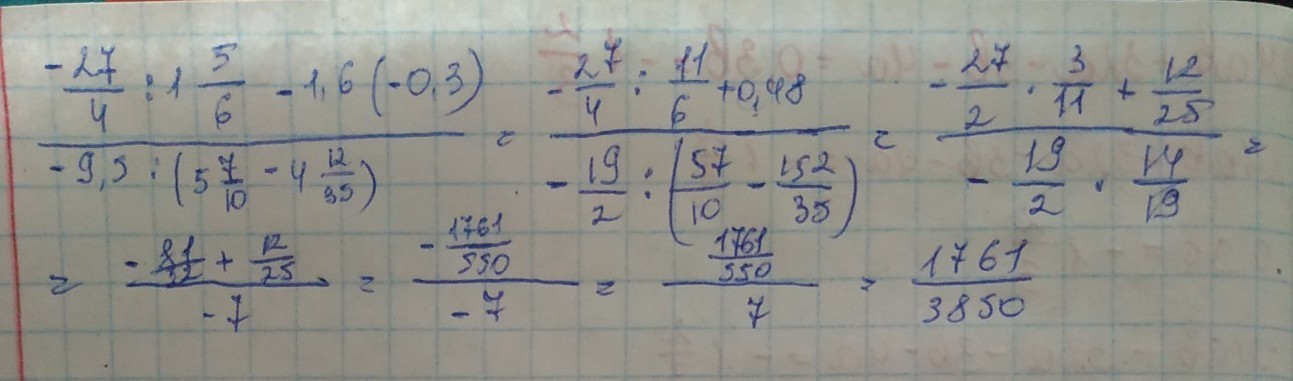 (-27/4 : 1 5/6 - 1,6 (-0,3)) / (-9,5 : (5 7/10 - 4 12/35)) = (-27/4 : 11/6 + 0,48) / (-19/2 : (57/10 - 152/35)) = (-27/2 · 3/11 + 12/25) / (-19/2 · 14/19) =
= (-81/22 + 12/25) / -7 = (-1761/550) / -7 = (1761/550) / 7 = 1761/3850